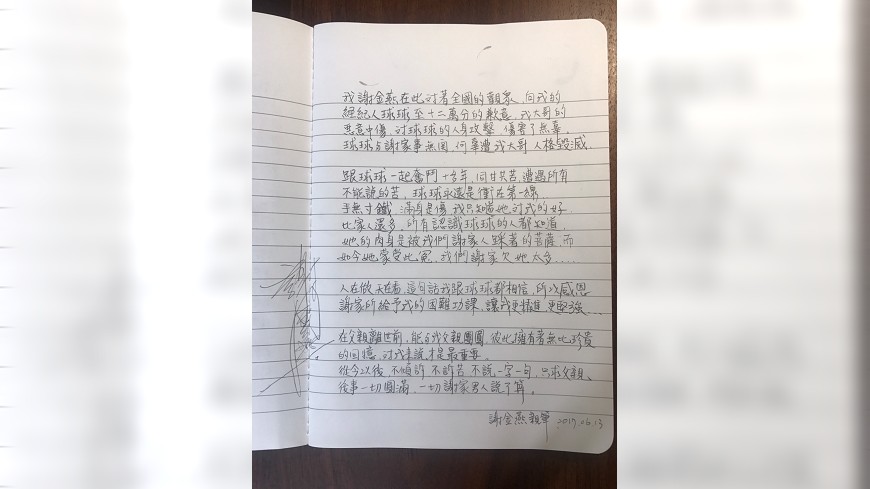 我謝金燕在此对著全國的觀眾，向我的
經紀人球球至十二萬分的歉意，我大哥的
惡意中傷，对球球的人身攻擊，傷害了無辜。
球球与謝家事無関，何辜遭我大哥人格毀滅。
跟球球一起奮鬥十多年，同甘共苦，遭遇所有
不能說的苦，球球永遠是衝在第一線
手無寸鐵，滿身是傷，我只知道她对我的好
比家人還多，所有認識球球的人都知道，
她的内身是被我們謝家人踩著的菩薩，而
如今她蒙受此冤，我們謝家欠她太多.....
人在做天在看，這句話我跟球球都相信，所以感恩
謝家所給予我的困難功課，讓我更精進，更堅強...
在父親離世前，能与我父親團圓，彼此擁有著無比珍貴
的回憶，对我来說才是最重要。
從今以後，不傾訴 不訴苦 不說一字一句，只求父親、
後事一切圓滿，一切謝家男人說了算。
謝金燕親筆 2019.06.13